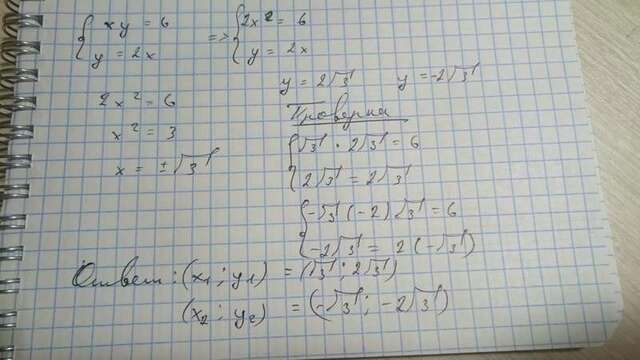 { xy = 6 => { 2x² = 6
y = 2x y = 2x
2x² = 6 y = 2√3 y = -2√3
x² = 3 Проверка
x = ±√3 { √3 · 2√3 = 6
2√3 = 2√3
{ -√3 (-2)√3 = 6
-2√3 = 2(-√3)
Ответ: (x₁; y₁) = (√3; 2√3)
(x₂; y₂) = (-√3; -2√3)